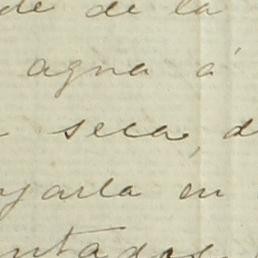 de de la
agua á
seca, d
yarla en
ntados